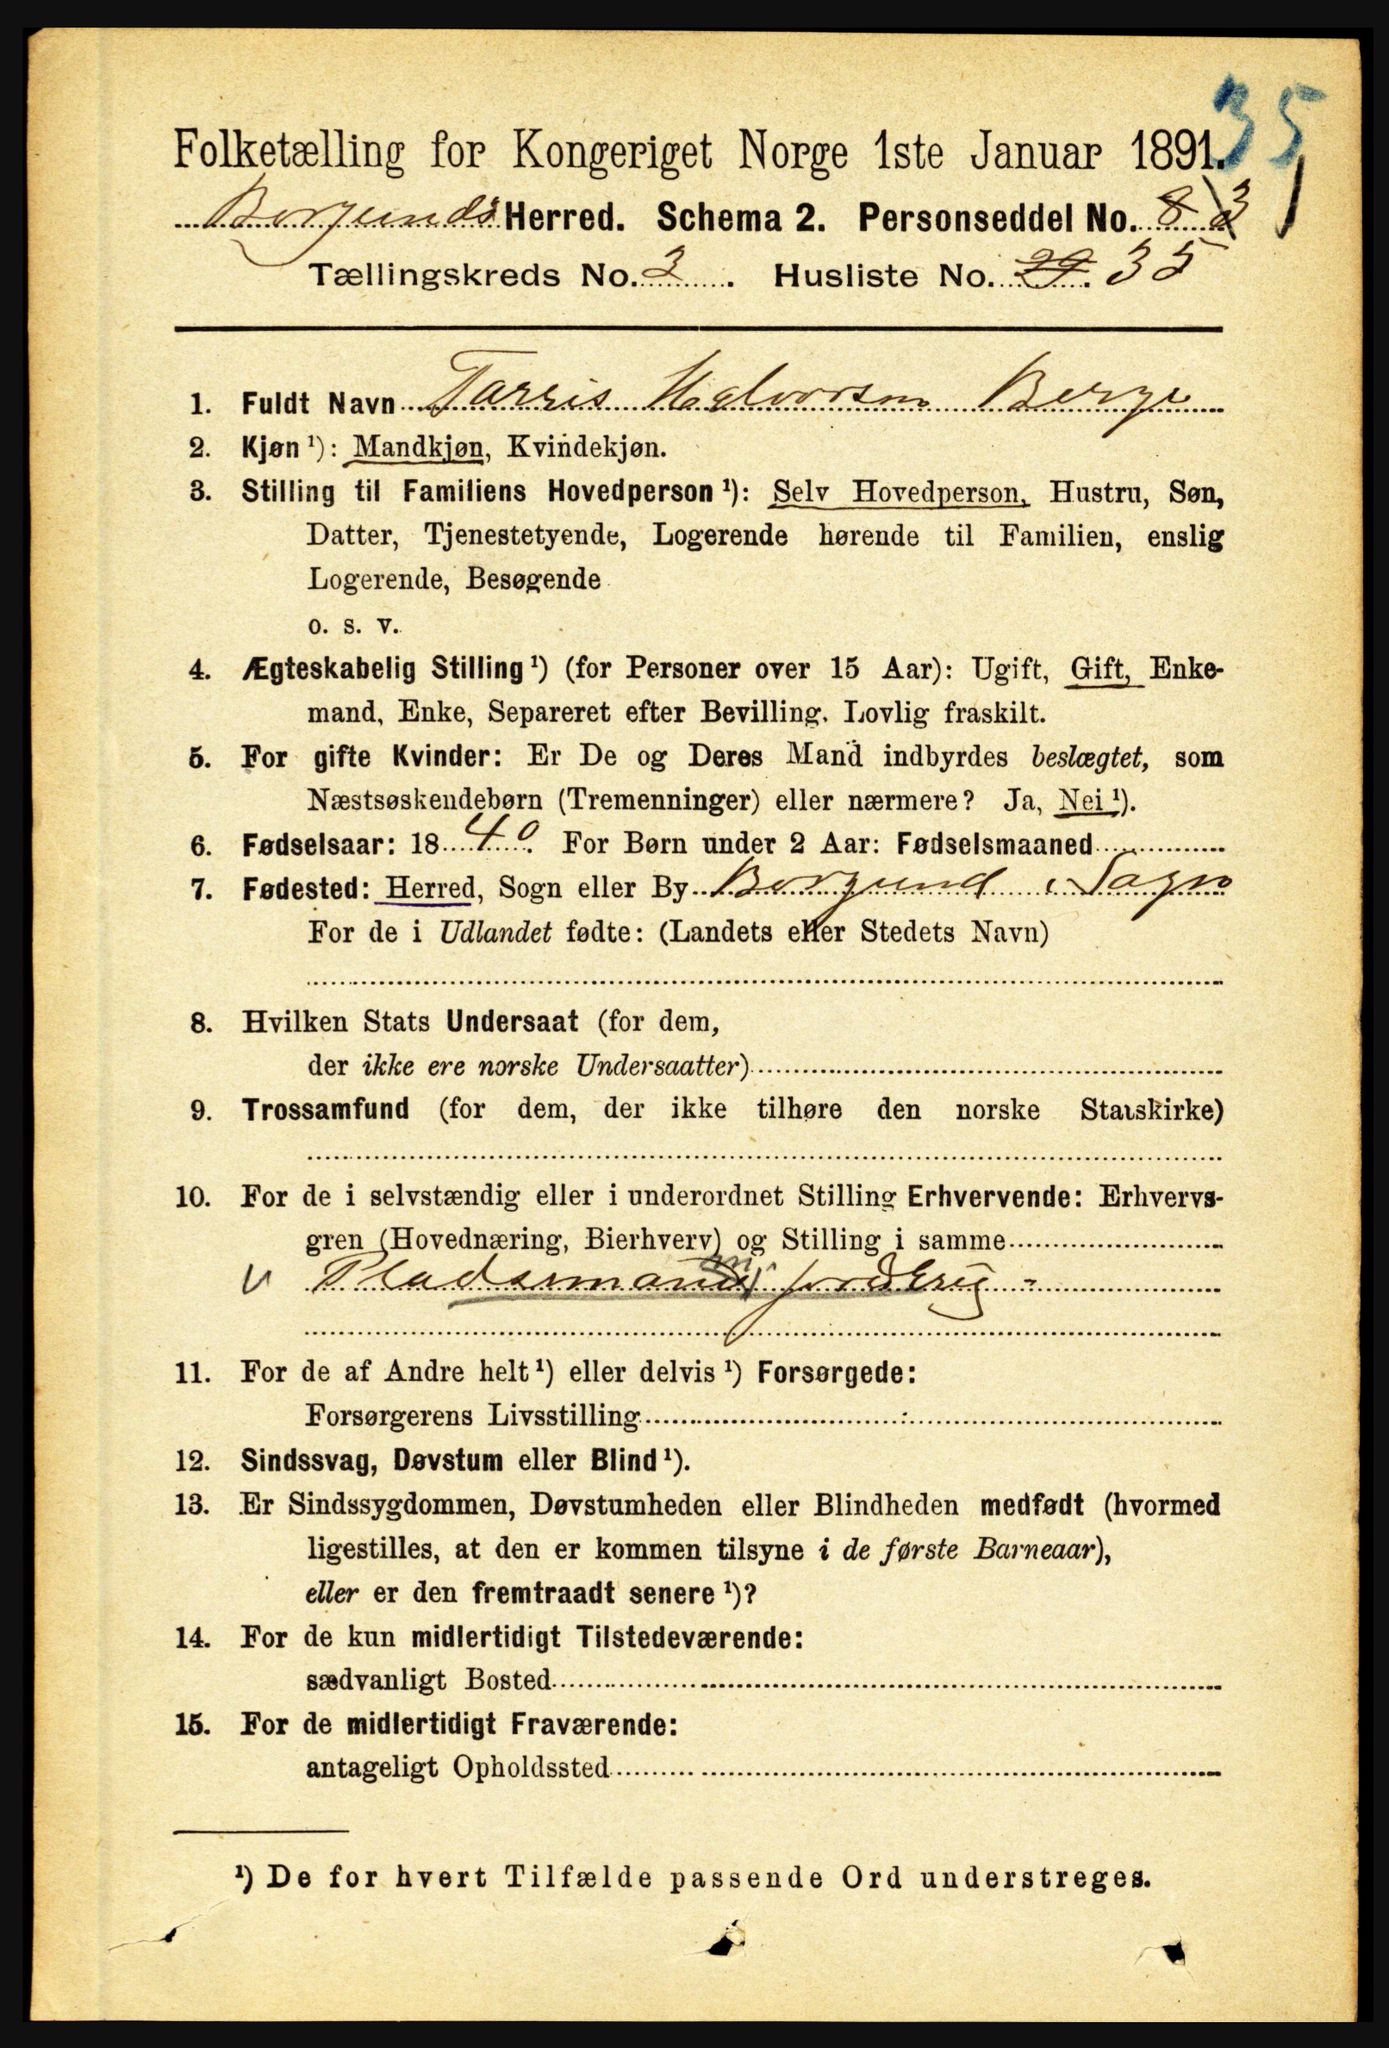 35
Folketælling for Kongeriget Norge 1ste Januar 1891.
Borgunds Herred. Schema 2. Personseddel No. 8 3
Tællingskreds No. 3. Husliste No. 29. 35
1. Fuldt Navn Tarris Halvorsen Berge
2. Kjøn ¹): Mandkjøn, Kvindekjøn.
3. Stilling til Familiens Hovedperson ¹): Selv Hovedperson, Hustru, Søn,
Datter, Tjenestetyende, Logerende hørende til Familien, enslig
Logerende, Besøgende
o. s. v.
4. Ægteskabelig Stilling ¹) (for Personer over 15 Aar): Ugift, Gift, Enke-
mand, Enke, Separeret efter Bevilling. Lovlig fraskilt.
5. For gifte Kvinder: Er De og Deres Mand indbyrdes beslægtet, som
Næstsøskendebørn (Tremenninger) eller nærmere? Ja, Nei ¹).
6. Fødselsaar: 1840. For Børn under 2 Aar: Fødselsmaaned
7. Fødested: Herred, Sogn eller By Borgund i Sogn
For de i Udlandet fødte: (Landets eller Stedets Navn)
8. Hvilken Stats Undersaat (for dem,
der ikke ere norske Undersaatter)
9. Trossamfund (for dem, der ikke tilhøre den norske Statskirke)
10. For de i selvstændig eller i underordnet Stilling Erhvervende: Erhvervs-
gren (Hovednæring, Bierhverv) og Stilling i samme
Pladsmand
11. For de af Andre helt ¹) eller delvis ¹) Forsørgede:
Forsørgerens Livsstilling
12. Sindssvag, Døvstum eller Blind ¹).
13. Er Sindssygdommen, Døvstumheden eller Blindheden medfødt (hvormed
ligestilles, at den er kommen tilsyne i de første Barneaar),
eller er den fremtraadt senere ¹)?
14. For de kun midlertidigt Tilstedeværende:
sædvanligt Bosted
15. For de midlertidigt Fraværende:
antageligt Opholdssted
¹) De for hvert Tilfælde passende Ord understreges.